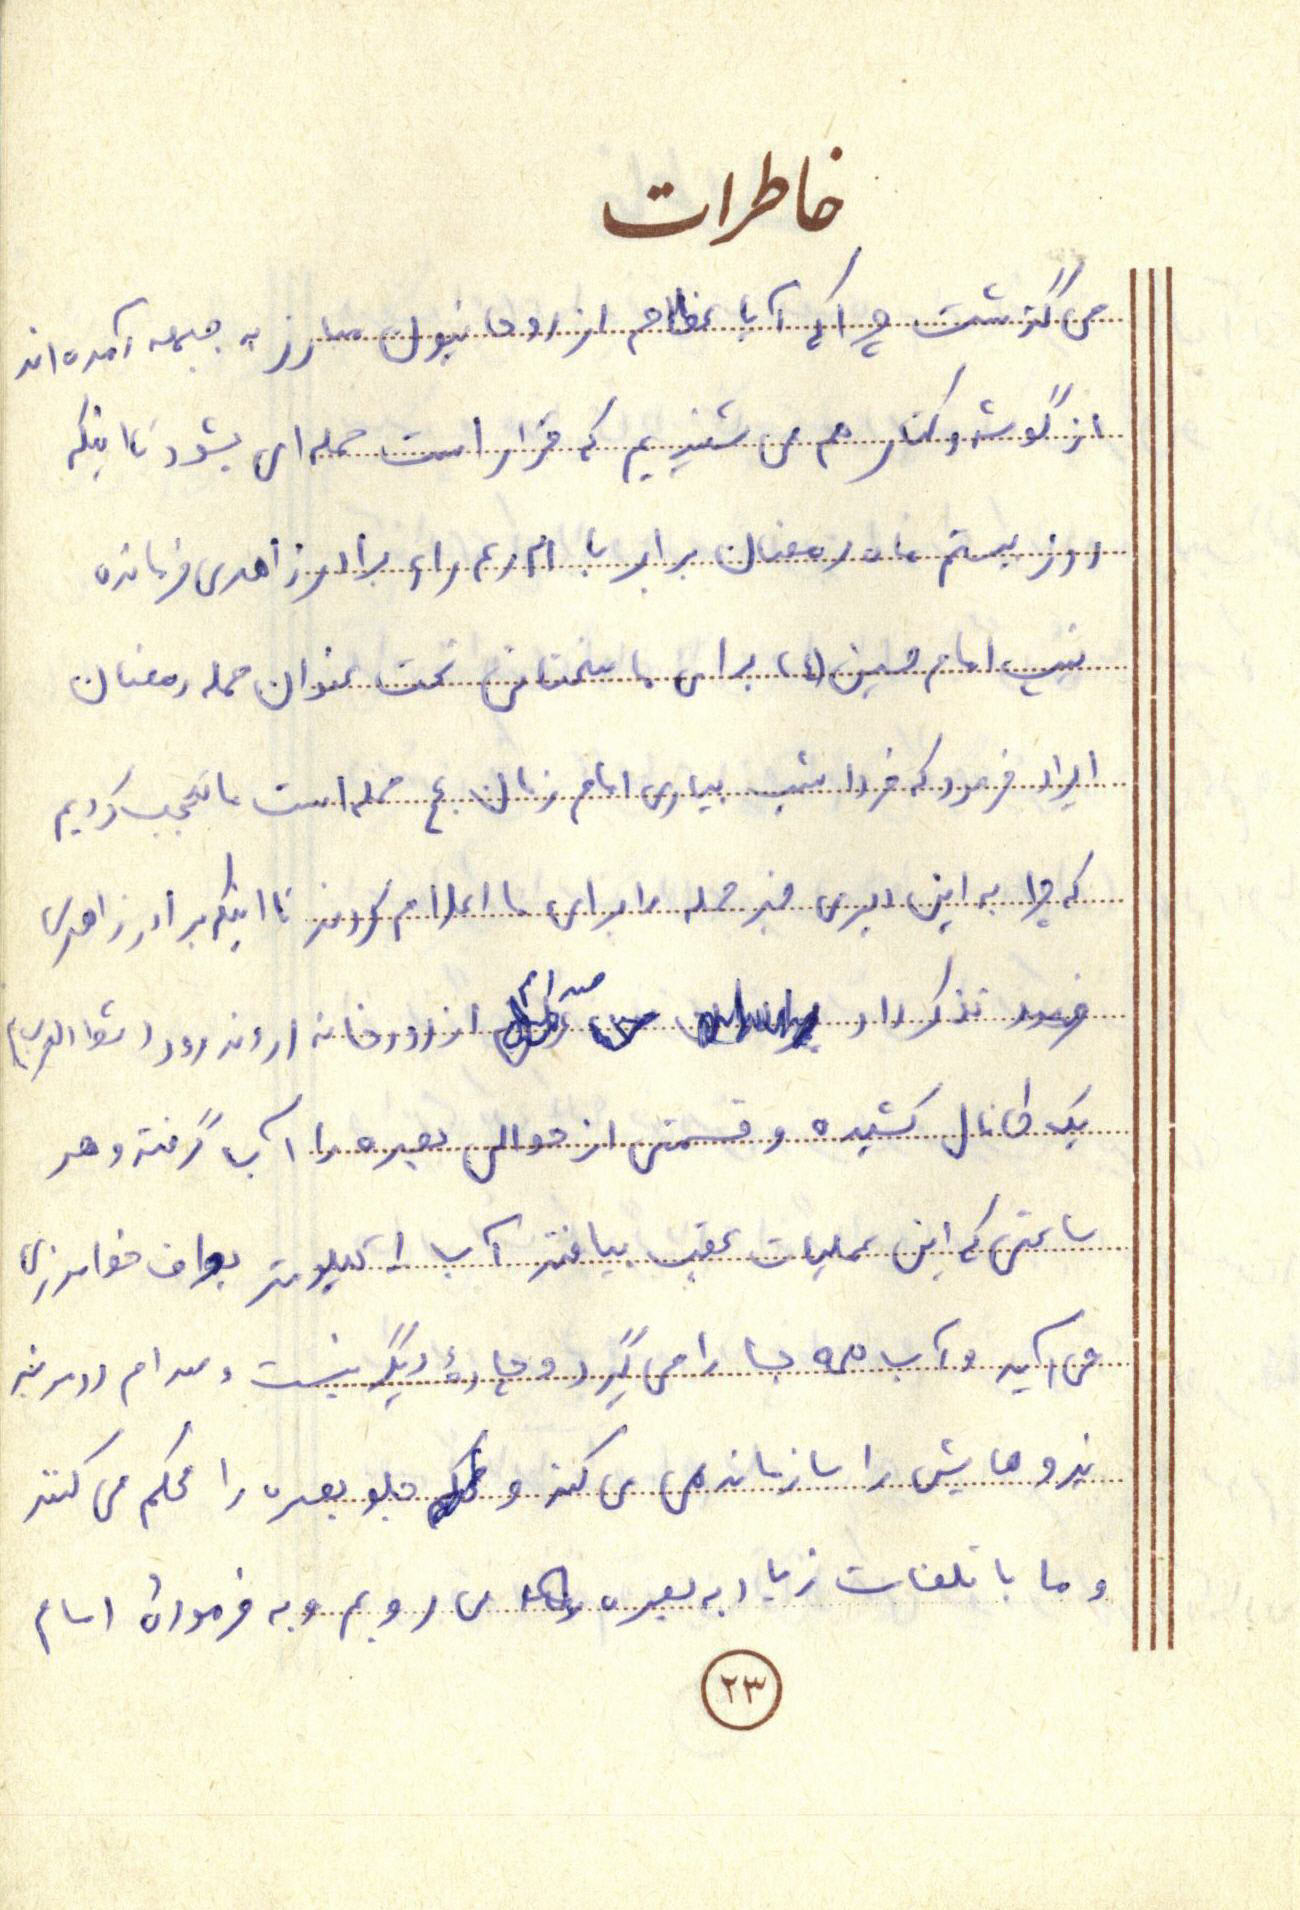 خاطرات
می گذشت چرا که آیا عظام از روحانیون مبارز به جبهه آمده اند
از گوشه و کنار هم می شنیدیم که قرار است حمله ای بشود تا اینکه
روز بیستم ماه رمضان برابر با برادر زاهدی فرمانده
تیپ امام حسین (ع) برای ما سخنانی تحت عنوان حمله رمضان
ایراد فرمود که فردا شب بیاری امام زمان عج حمله است ما تعجب کردیم
که چرا به این دیری خبر حمله را برای ما اعلام کردند تا اینکه برادر زاهدی
تذکر داد صدام از رودخانه اروند رود (شط العرب)
یک کانال کشیده و قسمتی از حوالی بصره را آب گرفته و هر
ساعتی که این عملیات عقب بیافتد آب ۱ کیلومتر بطرف
می آید و آب همه جا را می گیرد و چاره دیگر نیست و صدام دو مرتبه
نیروهایش را سازماندهی می کند و جلو بصره را محکم می کنند
و ما با تلفات زیاد به بصره می رویم و به فرموده امام
۲۳